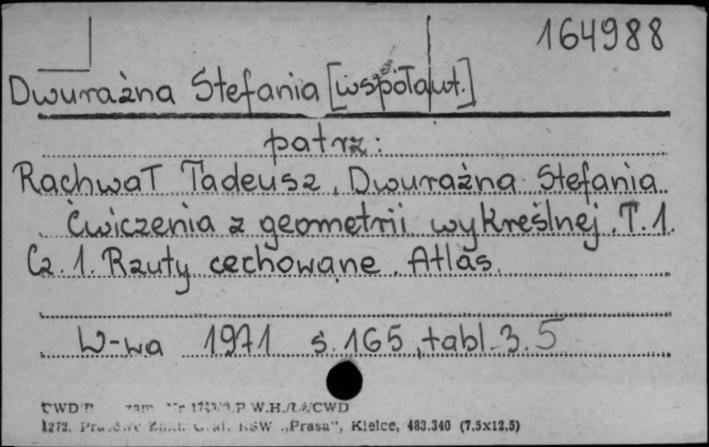 164988
Dwuraźna Stefania [współaut.]
patrz:
Rachwał Tadeusz, Dwuraźna Stefania
Ćwiczenia z geometrii wykreślnej. T. 1.
Cz. 1. Rzuty cechowane. Atlas.
W-wa 1971 s. 165, tabl. 3. 5
CWD zam. Nr P W.H./CWD
1272. Zakł. Graf. RSW „Prasa", Kielce, 483.340 (7.5x12,5)